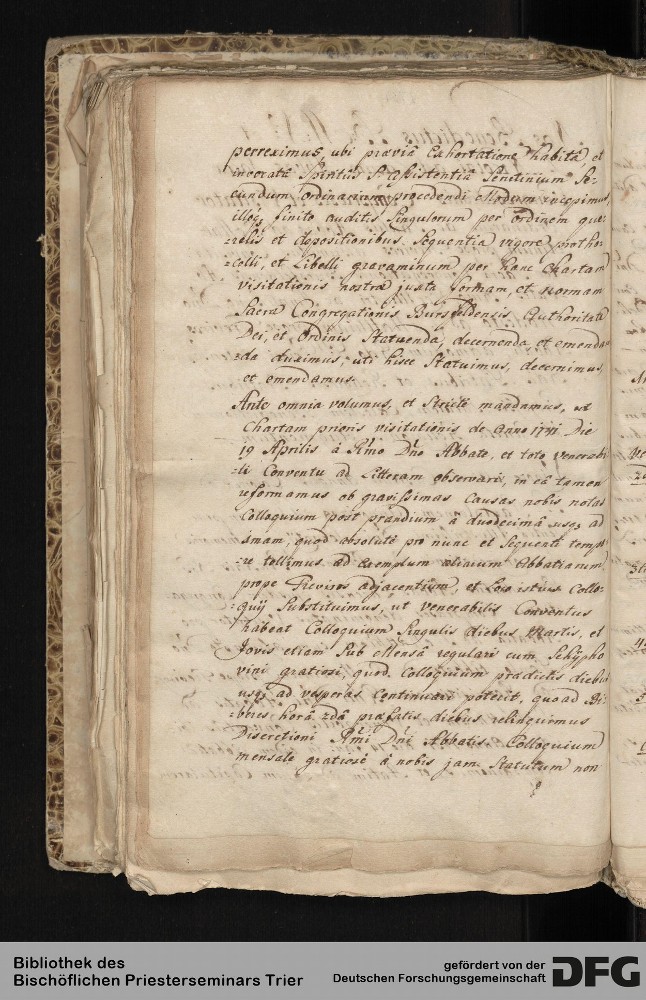 perreximus, ubi præviâ Exhortatione habitâ et
invocatâ Spiritus S. Assistentiâ Scrutinium Se-
cundum ordinarium procedendi Modum incepimus
illoq; finito auditis Singulorum per ordinem que-
-relis et depositionibus Sequentia vigore protho-
-colli, et Libelli gravaminum per hanc Chartam
visitationis nostræ juxta formam, et normam
Sacræ Congregationis Bursfeldensis Authoritate
Dei, et Ordinis Statuenda, decernenda et emendan
-da duximus, uti hisce Statuimus, decernimus,
et emendamus.
Ante omnia volumus, et Stricté mandamus, ut
Chartam prioris visitationis de Anno 1741 Die
19 Aprilis á Rmo Dno Abbate, et toto venerabi
-li Conventu ad Litteram observari, in eâ tamen
reformamus ob gravissimas Causas nobis notas
Colloquium post prandium â duodecimâ usq; ad
1mam, quod absoluté pro nunc et Sequenti tempo
-re tollimus ad Exemplum aliarum Abbatiarum
prope Treviros adjacentium, et Loco istius Collo-
-quij Substituimus, ut venerabilis Conventus
habeat Colloquium Singulis diebus Martis, et
Jovis etiam Sub Mensâ regulari cum Schÿpho
vini gratiosi, quod Colloquium prædictis diebus
usq; ad vesperas Continuari poterit, quoad Bi-
-beres horâ 2dâ præfatis diebus relinquimus
Discretioni Rmi Dni Abbatis. Colloquium
mensale gratiosé â nobis jam Statutum non
Bibliothek des
Bischöflichen Priesterseminars Trier
gefördert von der
Deutschen Forschungsgemeinschaft
DFG